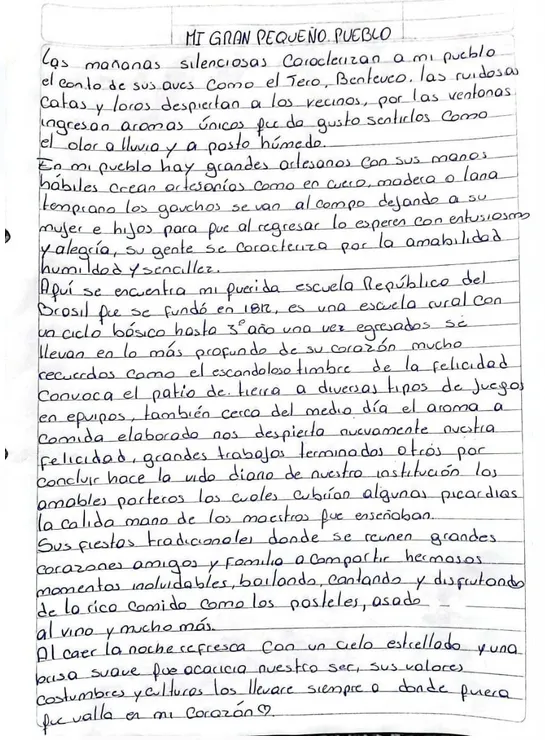 MI GRAN PEQUEÑO PUEBLO
Las mañanas silenciosas Caracterizan a mi pueblo
el canto de sus aves como el Tero, Benteveo, las ruidosas
Catas y loros despiertan a los vecinos, por las ventanas
ingresan aromas únicos que da gusto sentirlos como
el olor a lluvia y a pasto húmedo.
En mi pueblo hay grandes artesanos con sus manos
hábiles crean artesanías como en cuero, madera o lana
temprano los gauchos se van al campo dejando a su
mujer e hijos para que al regresar lo esperen con entusiasmo
y alegría, su gente se caracteriza por la amabilidad
humildad y sencillez.
Aquí se encuentra mi querida escuela República del
Brasil que se fundó en 1812, es una escuela rural con
un ciclo básico hasta 3° año una vez egresados se
llevan en lo más profundo de su corazón mucho
recuerdos como el escandaloso timbre de la felicidad
Convoca el patio de tierra a diversas tipos de juegos
en equipos, también cerca del medio día el aroma a
comida elaborada nos despierta nuevamente nuestra
felicidad, grandes trabajos terminados otros por
concluir hace la vida diaria de nuestra institución los
amables porteros los cuales cubrían algunas picardias
la calida mano de los maestros que enseñaban.
Sus fiestas tradicionales donde se reunen grandes
corazones amigos y familia a compartir hermosos
momentos inolvidables, bailando, cantando y disfrutando
de la rica comida como los pasteles, asado
al vino y mucho más.
Al caer la noche refresca con un cielo estrellado y una
brisa suave que acaricia nuestro ser, sus valores
costumbres y culturas los llevare siempre a donde quiera
que valla en mi corazón♡.